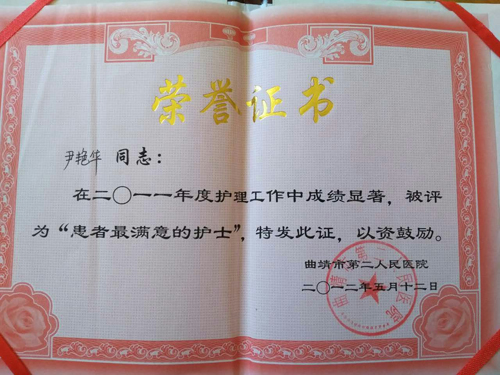 荣誉证书
尹艳华 同志：
在二〇一一年度护理工作中成绩显著，被评
为“患者最满意的护士”，特发此证，以资鼓励。
曲靖市第二人民医院
二〇一二年五月十二日